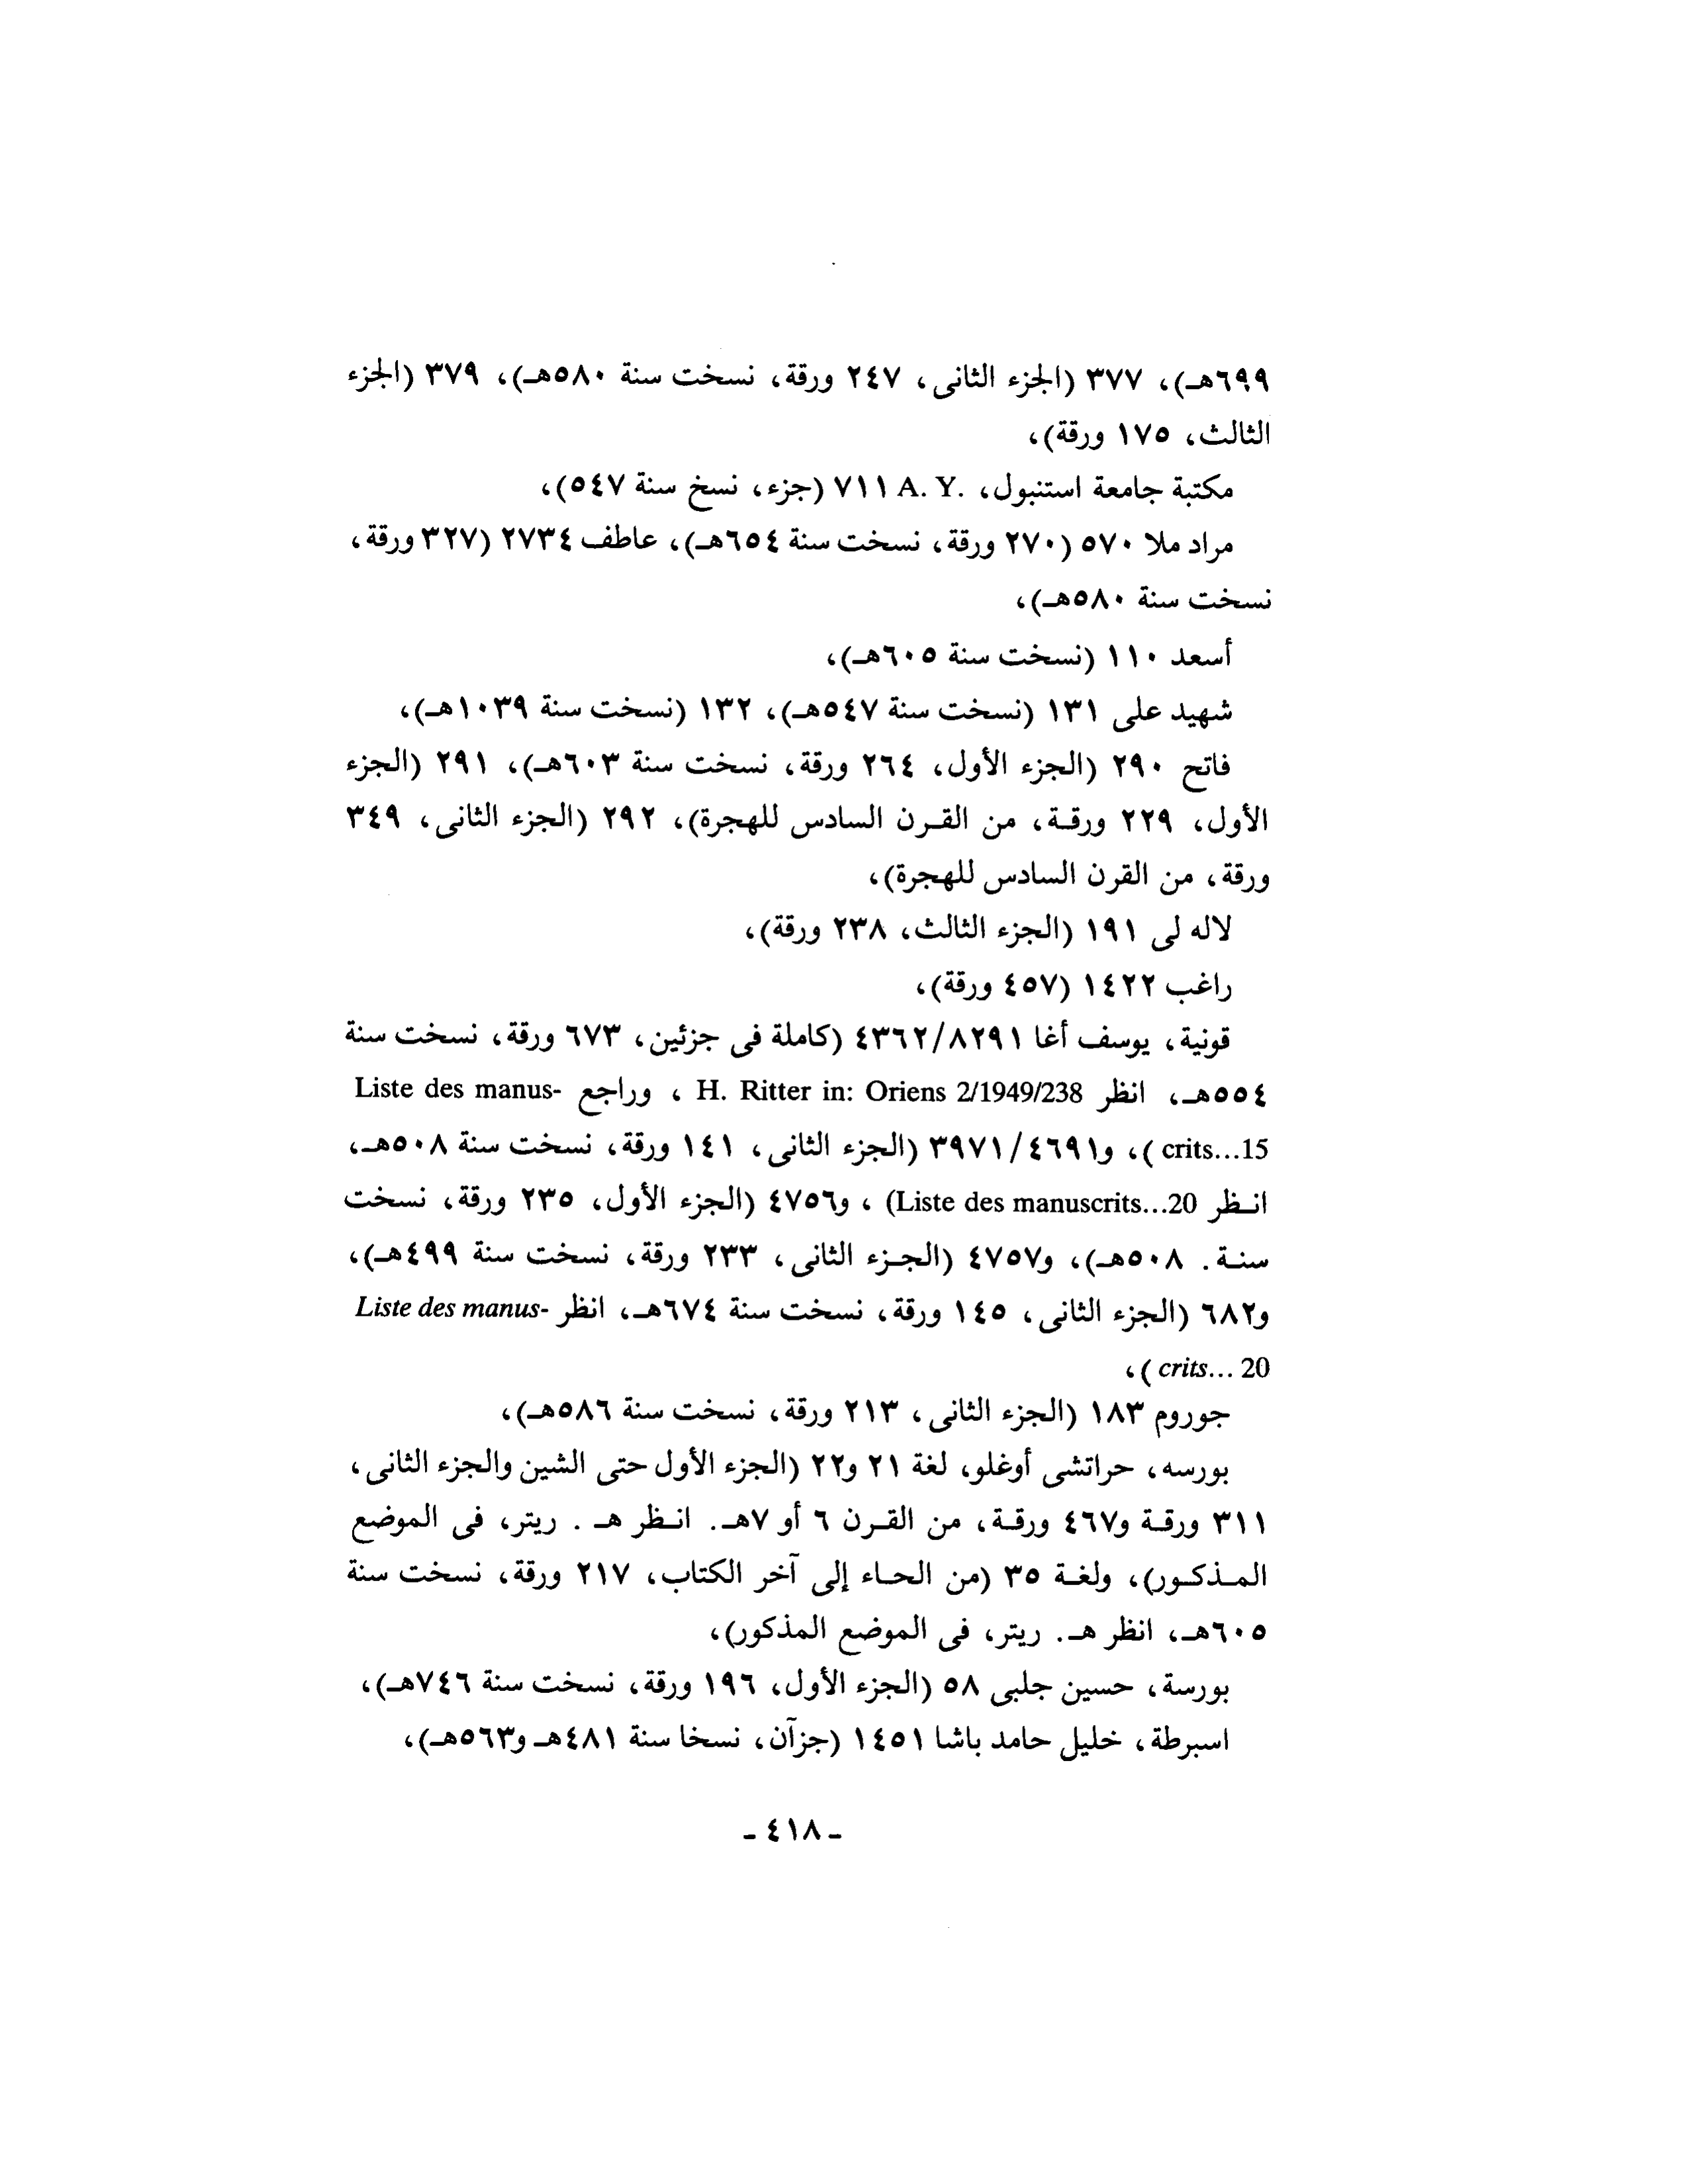 ٦٩٩هـ)، ٣٧٧ (الجزء الثانى، ٢٤٧ ورقة، نسخت سنة ٥٨٠هـ)، ٣٧٩ (الجزء
الثالث، ١٧٥ ورقة)،
مكتبة جامعة استنبول، .A. Y ٧١١ (جزء، نسخ سنة ٥٤٧)،
مراد ملا ٥٧٠ (٢٧٠ ورقة، نسخت سنة ٦٥٤هـ)، عاطف ٢٧٣٤ (٣٢٧ ورقة،
نسخت سنة ٥٨٠هـ)،
أسعد ١١٠ (نسخت سنة ٦٠٥هـ)،
شهيد على ١٣١ (نسخت سنة ٥٤٧هـ)، ١٣٢ (نسخت سنة ١٠٣٩هـ)،
فاتح ٢٩٠ (الجزء الأول، ٢٦٤ ورقة، نسخت سنة ٦٠٣هـ)، ٢٩١ (الجزء
الأول، ٢٢٩ ورقة، من القرن السادس للهجرة)، ٢٩٢ (الجزء الثانى، ٣٤٩
ورقة، من القرن السادس للهجرة)،
لاله لى ١٩١ (الجزء الثالث، ٢٣٨ ورقة)،
راغب ١٤٢٢ (٤٥٧ ورقة)،
قونية، يوسف أغا ٤٣٦٢/٨٢٩١ (كاملة فى جزئين، ٦٧٣ ورقة، نسخت سنة
٥٥٤هـ، انظر H. Ritter in: Oriens 2/1949/238 ، وراجع Liste des manus-
crits...15 )، و٣٩٧١/٤٦٩١ (الجزء الثانى، ١٤١ ورقة، نسخت سنة ٥٠٨هـ،
انظر Liste des manuscrits...20) ، و٤٧٥٦ (الجزء الأول، ٢٣٥ ورقة، نسخت
سنة. ٥٠٨هـ)، و٤٧٥٧ (الجزء الثانى، ٢٣٣ ورقة، نسخت سنة ٤٩٩هـ)،
و٦٨٢ (الجزء الثانى، ١٤٥ ورقة، نسخت سنة ٦٧٤هـ، انظر Liste des manus-
crits... 20 )،
جوروم ١٨٣ (الجزء الثانى، ٢١٣ ورقة، نسخت سنة ٥٨٦هـ)،
بورسه، حراتشى أوغلو، لغة ٢١ و٢٢ (الجزء الأول حتى الشين والجزء الثانى،
٣١١ ورقة و٤٦٧ ورقة، من القرن ٦ أو ٧هـ. انظر هـ . ريتر، فى الموضع
المذكور)، ولغة ٣٥ (من الحاء إلى آخر الكتاب، ٢١٧ ورقة، نسخت سنة
٦٠٥هـ، انظر هـ. ريتر، فى الموضع المذكور)،
بورسة، حسين جلبى ٥٨ (الجزء الأول، ١٩٦ ورقة، نسخت سنة ٧٤٦هـ)،
اسبرطة، خليل حامد باشا ١٤٥١ (جزآن، نسخا سنة ٤٨١هـ و٥٦٣هـ)،
- ٤١٨ -